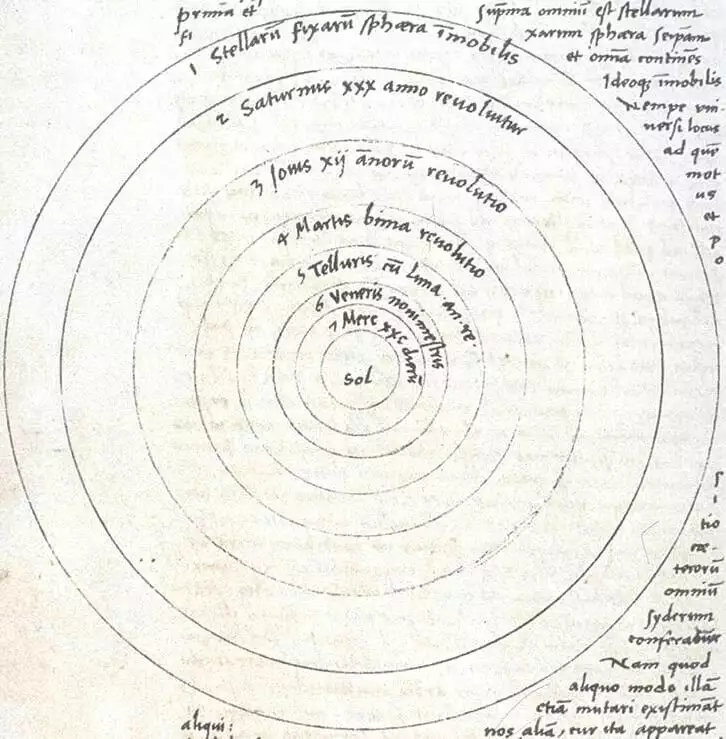 prima et
fi
Supma omniū est stellarum
xarum sphæra seipam
et omnia continēs
Ideoqꝫ īmobilis
Nempe vni
versi locus
ad quē
mot
us
et
p
o
1 Stellarū fixarū sphæra īmobilis
2 Saturnus xxx anno reuoluitur
3 Iouis xij ānorū reuolutio
4 Martis bima reuolutio
5 Telluris cū Luna an. re.
6 Veneris nonimestris
7 Merc xxc dierū
Sol
s
i
tio
cæ-
terorū
omniū
syderum
conferatur
Nam quod
aliquo modo illā
etiā mutari existimāt
aliqui:
nos aliā, cur ita appareat